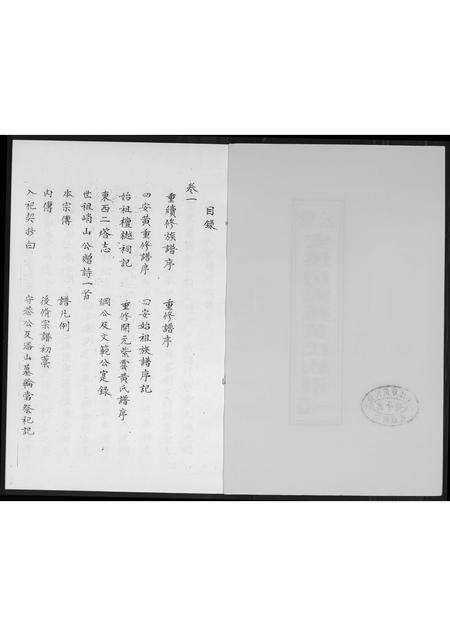 目錄
卷一
重續修族譜序 重修譜序
四安黃重修譜序 四安始祖族譜序記
始祖檀樾祠記 重修開元紫雲黃氏譜序
東西二塔志 綱公及文範公寔錄
世祖峭山公贈詩一首
本宗傳 譜凡例
內傳 後脩宗譜初藁
入祀契抄白 守恭公及峭山墓輪當祭祀記